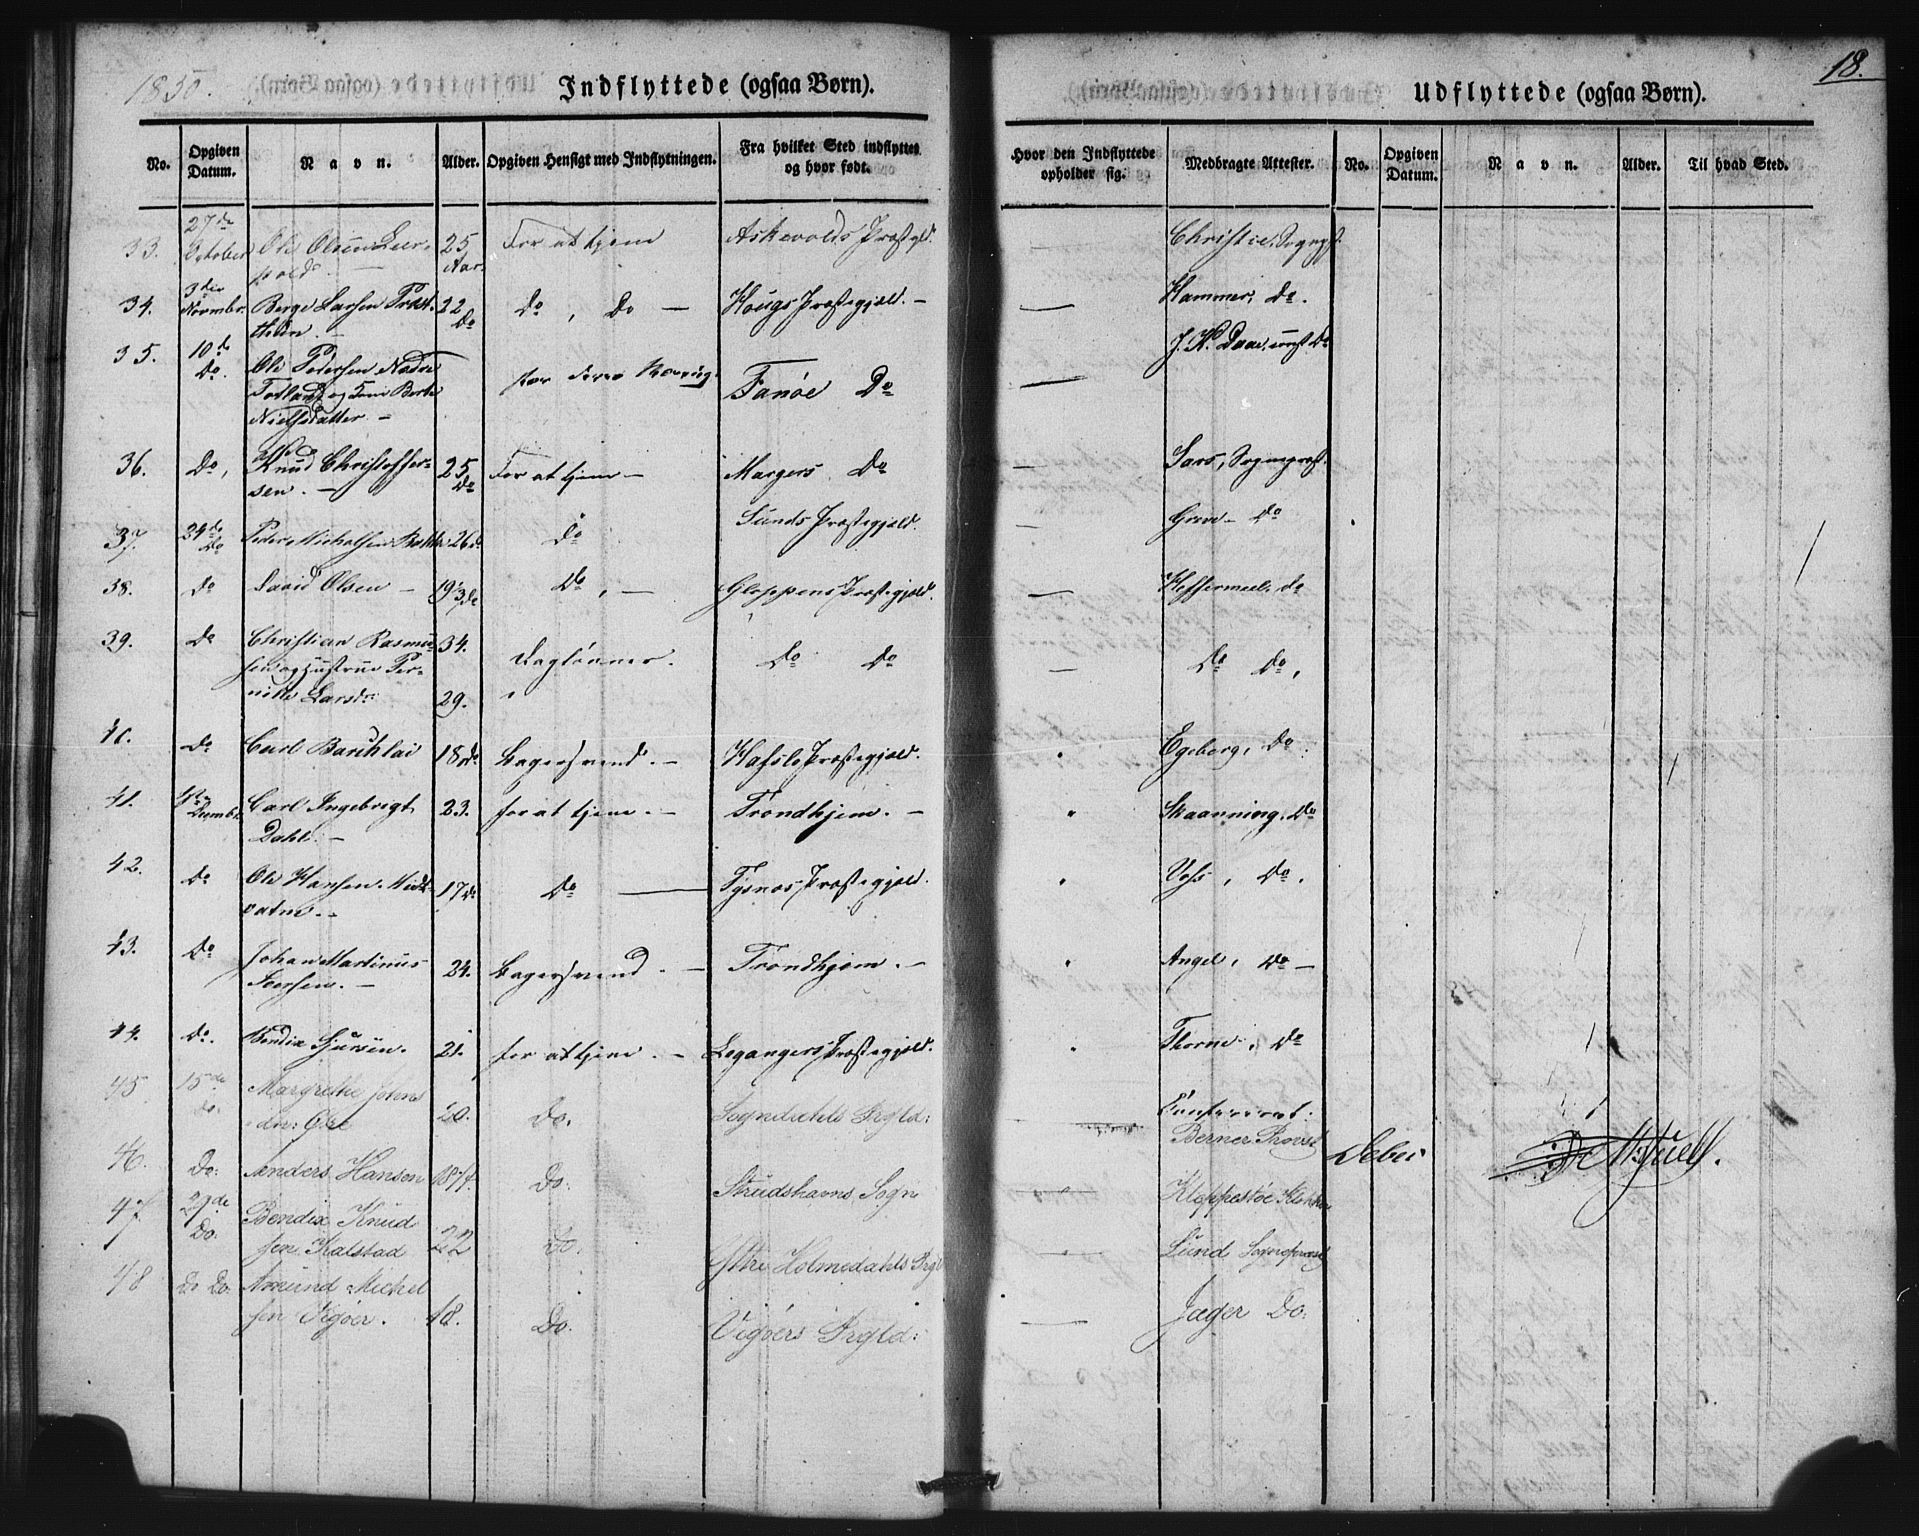 1850.
Indflyttede (ogsaa Børn).
No. Opgiven Datum. Navn. Alder. Opgiven Hensigt med Indflytningen. Fra hvilket Sted indflyttet og hvor født.
33. 27de October Ole Olsen 25 Aar. For at tjene Askevolds Præstgld.
34. 3die Novembr. Berge Larsen 22 Do Do, Do — Hougs Præstegjæld. —
35. 10de Do. Ole Pedersen Nedre Totland og Kone Berte Nielsdatter — Fanøe Do
36. Do, Knud Christoffersen. — 25 Do For at tjene — Mangers Do
37. 24de Do Peder Michelsen 26 d. Do Sunds Præstegjæld.
38. Do David Olsen — 19 3/4 Do Do, — Gloppens Præstegjæld.
39. Do Christian Rasmussen og Hustrue Pernille Larsdr: 34. 29. Daglønner. Do Do
40. Do Carl Barchlai 18 do Bagersvend. — Hafslo Præstegjæld.
41. Decembr. Carl Ingebrigt Dahl. — 23. for at tjene. — Trondhjem. —
42. Do Ole Hansen 17 Do Do — Tysnæs Præstegjæld.
43. Do Johan Martinus Iversen. — 24. Bagersvend. — Trondhjem. —
44. Do. Bendix Sjursen. 21. for at tjene. — Leganger Præstegjæld.
45 15de Do. Margrethe Johnsdr: 20. Do. Sogndahls Prgld:
46. Do. Anders Hansen 18 Do. Strudshavns Sogn
47 29de Do. Bendix Knudsen Kalstad 22 Do. Yttre Holmedahls Prgl
48 Do Do. Amund Michelsen Vigøer. 18. Do. Vigøers Prgld:
18.
Udflyttede (ogsaa Børn).
Hvor den Indflyttede opholder sig. Medbragte Attester. No. Opgiven Datum. Navn. Alder. Til hvad Sted.
— Christie, Sognpr.
— Hammer, Do.
— J. K. Daae, Do
— Sars, Sognepræst.
— Greve — Do
— Heffermeel, do
— Do Do,
Egeberg, Do.
Skaanning, Do
Voss, Do.
Angel, Do —
Thorne, Do
Berner Provst
Kleppestøe Klokker
Lund Sognepræst
— Jæger Do.